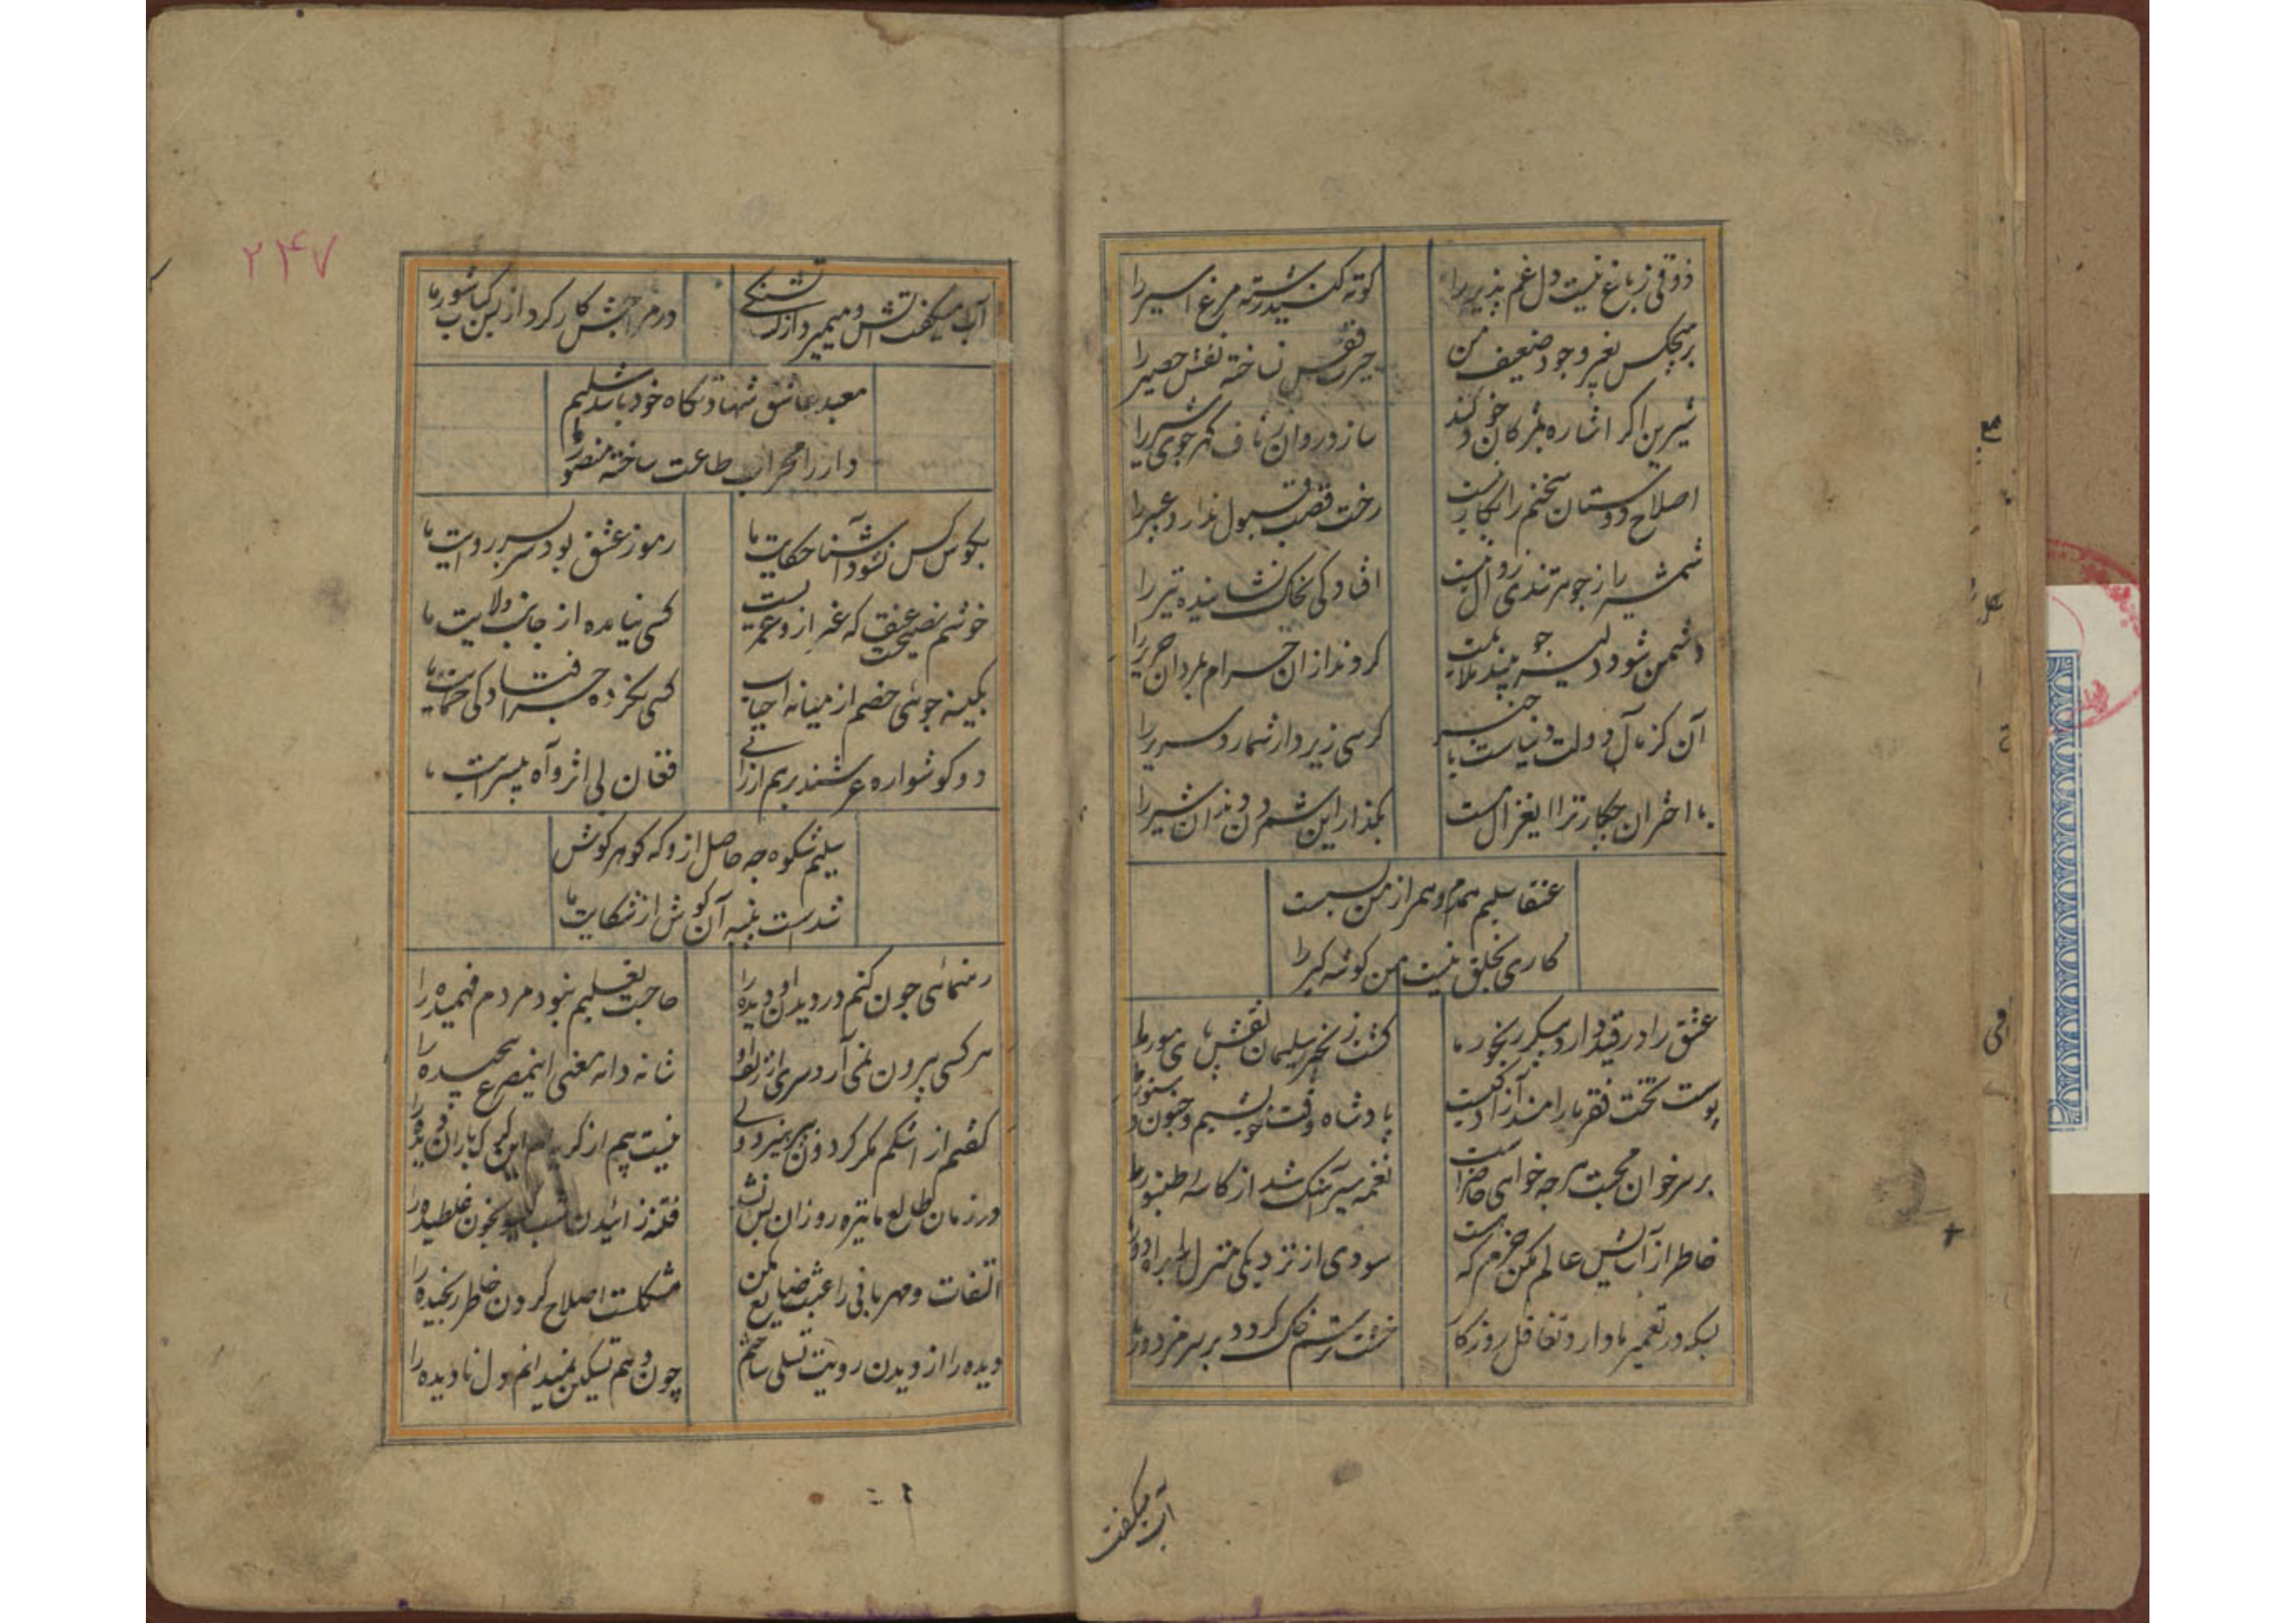 ذوقی ز باغ نیست دل غم پذیر را
کوته کنید رشته مرغ اسیر را
بر هیچکس بغیر وجود ضعیف من
حیرت قفس نساخته نقش حصیر را
شیرین اگر اشاره بمژکان خود کند
سازد روان ز ناف کهر جوی شیر را
اصلاح دوستان سخنم را بکار نیست
رخت قصب قبول ندارد عبیر را
شمشیر را ز جوهر تندی زوال نیست
افتادکی بخاک نشانیده تیر را
دشمن شود دلیر چو بیند ملایمت
کردند از ان حرام بمردان حریر را
آن کز مآل دولت دنیاست با خبر
کرسی زیر دار شمارد سریر را
با اختران چکار ترا ای غزال مست
بگذار این شمردن دندان شیر را
عنقا سلیم همدم و همراز من بس است
کاری بخلق نیست من کوشه کیر را
عشق را در قید دارد پیکر رنجور ما
کشت زنجیر سلیمان نقش پای مور ما
پوست تخت فقر ما را مسند آزادکیست
پادشاه وقت خویشیم و جنون دستور ما
بر سر خوان محبت هر چه خواهی حاضر است
نغمه سیر آهنک شد از کاسه طنبور ما
خاطر از آسایش عالم بکن خرم که هست
سودی از نزدیکی منزل براه دور ما
بسکه در تعمیر ما دارد تغافل روزکار
خشت برسر خاک کردد بر سر مزدور ما
آب میکفت
۲۴۷
آب میکفت آتش و میمیرد از لب تشنکی
در مزاجش کار کرد از بس کباب شور ما
معبد عاشق شهادتکاه خود باشد سلیم
دار را محراب طاعت ساخته منصور ما
بکوش کس نشود آشنا حکایت ما
رموز عشق بود سر بسر روایت ما
خوشم نصیحت عنقا که غیر ازو عمریست
کسی نیامده از جانب ولایت ما
بکینه جوئی خصم از میانه احباب
کسی نکرده جز افتادکی حمایت ما
دو کوشواره عرشند بر هم ارزانی
فغان بی اثر و آه بیسرایت ما
سلیم شکوه چه حاصل ازو که کوهر کوش
شدست پنبه آن کوش از شکایت ما
رهنمائی چون کنم در دیدن او دیده را
حاجت تعلیم نبود مردم فهمیده را
هر کسی بیرون نمی آرد سری از زلف او
شانه داند معنی این مصرع پیچیده را
کفتم از اشکم مکر کردون بپرهیزد ولی
نیست بیم از کریه ام این کرک باران دیده را
در زمان طالع ما تیره روزان بس نشد
فتنه زائیدن شب کیسو بخون غلطیده را
التفات و مهربانی را عبث ضایع مکن
مشکلست اصلاح کردن خاطر رنجیده را
دیده را از دیدن رویت تسلی ساختم
چون دهم تسکین نمیدانم دل نادیده را